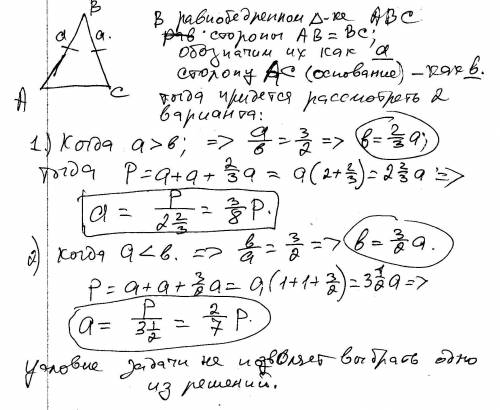 B
a
a
A
C
В равнобедренном Δ-ке ABC
стороны AB = BC;
обозначим их как a
сторону AC (основание) – как b.
тогда придется рассмотреть 2
варианта:
1.) Когда a > b; => a/b = 3/2 => b = 2/3 a;
тогда P = a + a + 2/3 a = a(2 + 2/3) = 2 2/3 a =>
a = P / 2 2/3 = 3/8 P.
2) когда a < b. => b/a = 3/2 => b = 3/2 a.
P = a + a + 3/2 a = a(1 + 1 + 3/2) = 3 1/2 a =>
a = P / 3 1/2 = 2/7 P.
условие задачи не позволяет выбрать одно
из решений.